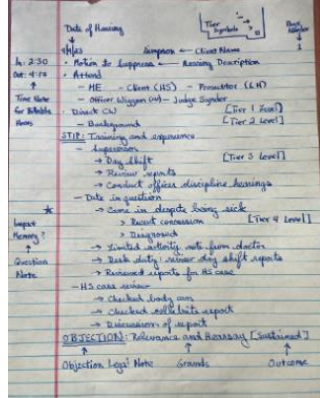 Date of Hearing
Tier Symbols
Page Number
4/4/23 Simpson ← Client Name
In: 2:30 • Motion to Suppress ← Hearing Description
Out: 4:10 • Attend
- ME - Client (HS) - Prosecutor (LH)
Time Note - Officer Wiggum (W) - Judge Snyder
for Billable • Direct CW [Tier 1 Level]
Hours - Background [Tier 2 Level]
STIP: Training and experience
- Supervisor
→ Day Shift [Tier 3 Level]
→ Review reports
→ Conduct officer discipline hearings
- Date in question
→ Came in despite being sick
> Recent concussion [Tier 4 Level]
> Diagnosed
Memory? → Limited activity note from doctor
→ Desk duty: review day shift reports
Question → Reviewed reports for HS case
Note - HS case review
→ Checked body cam
→ Checked report
→ Discussion of report
OBJECTION: Relevance and Hearsay [Sustained]
Objection Legal Note Grounds Outcome